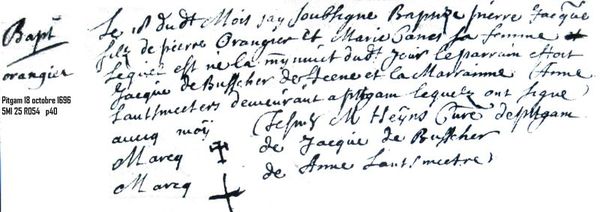 Bapt
orangier
Pitgam 18 octobre 1696
5MI 25 R054 p40
Le 18 dudt Mois jay soubsigne Baptize pierre Jacque
fils de pierre Orangier et Marie sa femme
lequel est ne la mynuict dudt Jour le parrain estoit
Jacque de Busscher de et la Marranne Anne
Lautsmeeters demeurant a pitgam lequels ont signe
avecq moy M Heyns Cure de pitgam
Marcq de Jacque de Busscher
Marcq de Anne Lautsmeetre